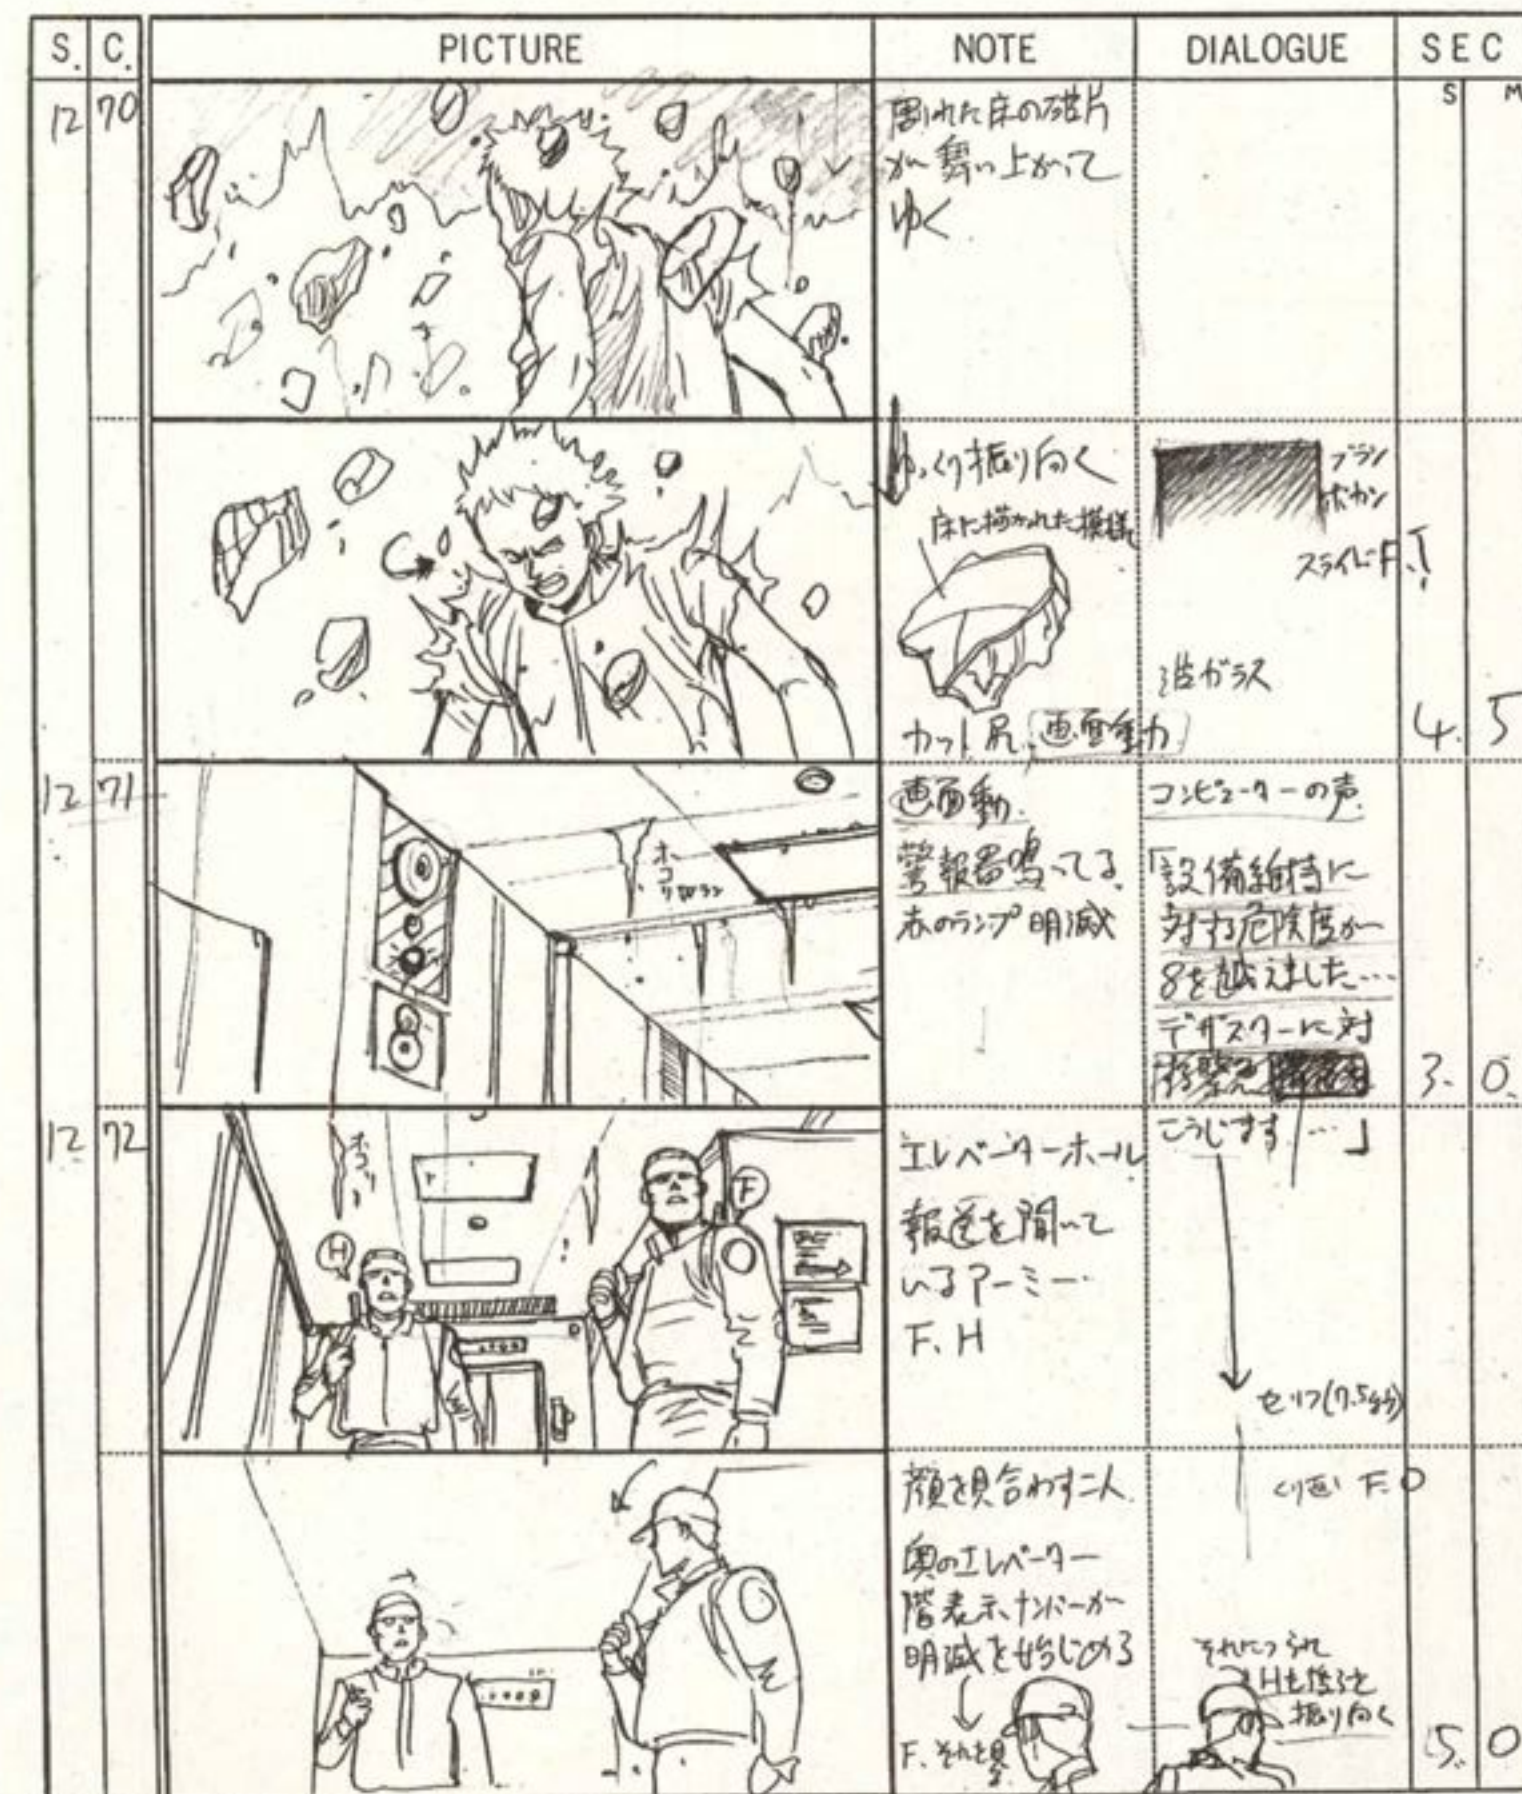 S. C. PICTURE NOTE DIALOGUE SEC
S M
12 70
割れた床の破片
が舞い上がって
ゆく
ゆっくり振り向く
床に描かれた模様
カット尻 画面動
ブラシ
ボカシ
波ガラス
4. 5
12 71
ホコリ
画面動.
警報器鳴ってる.
赤のランプ明滅
コンピューターの声.
「設備維持に
対する危険度が
8を越えました…
デザスターに対
3. 0.
12 72
ホコリ
H
F
エレベーターホール
報送を聞いて
いるアーミー
F. H
こうじます…」
セリフ
顔を見合わす二人.
奥のエレベーター
階表示ナンバーが
明滅を始じめる
F. それを見
くり返し F.O
それにつられ
Hも後ろを
振り向く
5. 0